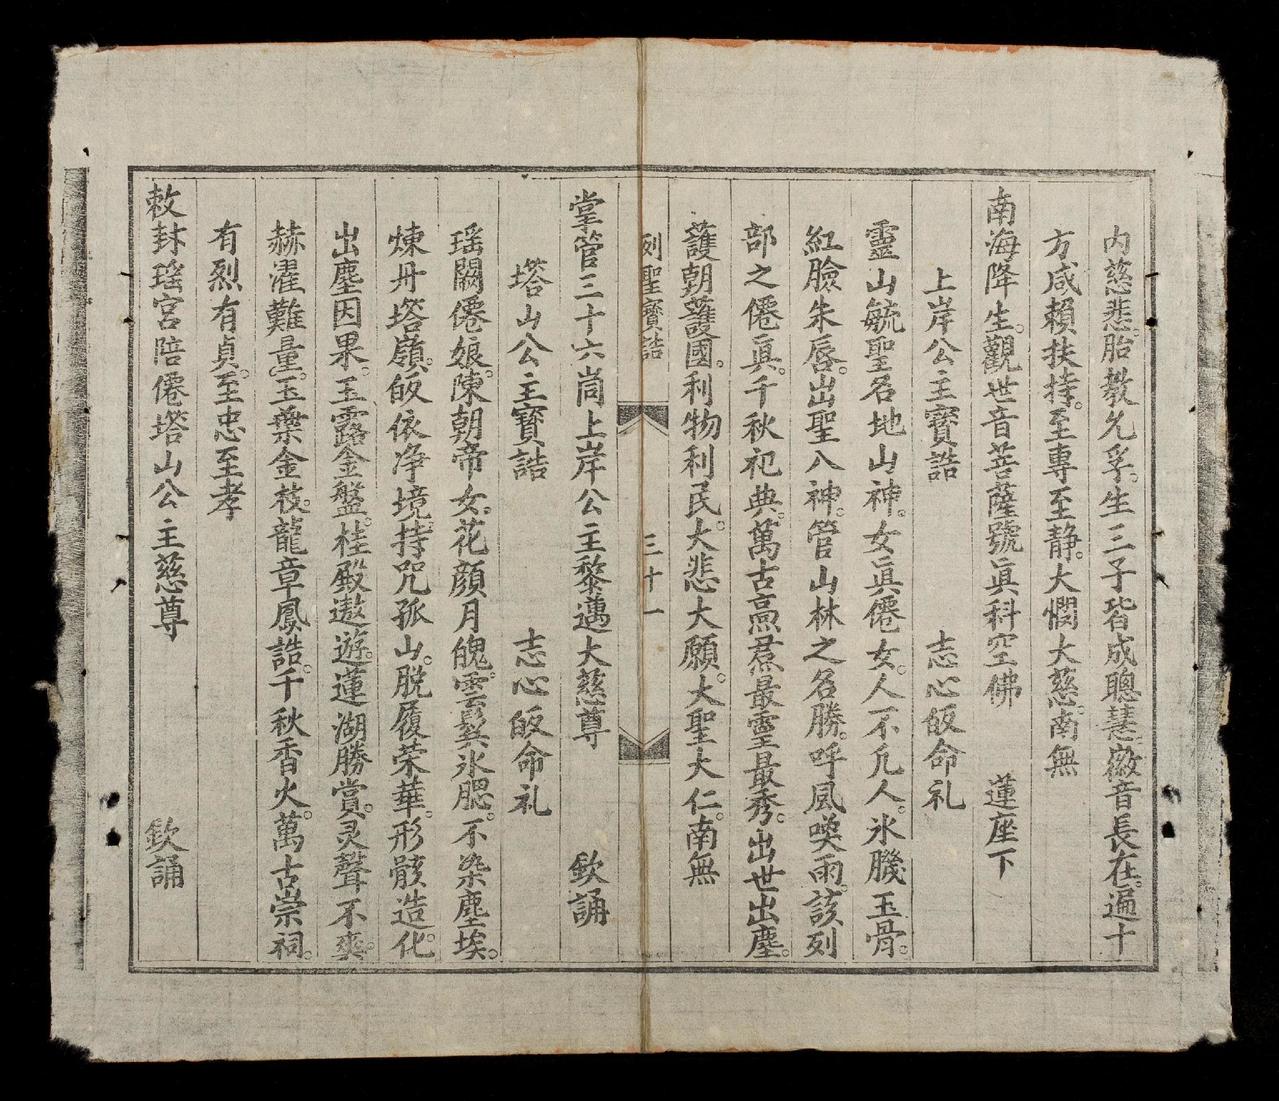 内慈悲。胎教允孚。生三子皆成聰慧徽音長在。遍十
方咸賴扶持。至專至静。大憫大慈。南無
南海降生。觀世音菩薩號眞科空佛　蓮座下
上岸公主寳誥　志心皈命礼
靈山毓聖名地山神。女眞僊女。人不凢人。氷機玉骨。
紅臉朱唇。出聖八神。管山林之名勝。呼風喚雨。該列
部之僊眞。千秋祀典。萬古焄𮎰最靈最秀。出世出塵。
護朝護國。利物利民。大悲大願。大聖大仁。南無
掌管三十六峝上岸公主黎邁大慈尊　欽誦
列聖寳誥　三十一
塔山公主寳誥　志心皈命礼
瑶闕僊娘。陳朝帝女。花顔月魄。雲鬂氷腮。不染塵埃。
煉丹塔嶺。皈依净境。持咒孤山。脱履荣華。形骸造化。
出塵因果。玉露金盤。桂殿遨遊。蓮湖勝賞。灵聲不爽。
赫濯難量。玉葉金枝。龍章鳳誥。千秋香火。萬古崇祠。
有烈有貞。至忠至孝
敕封瑶宮陪僊塔山公主慈尊　欽誦